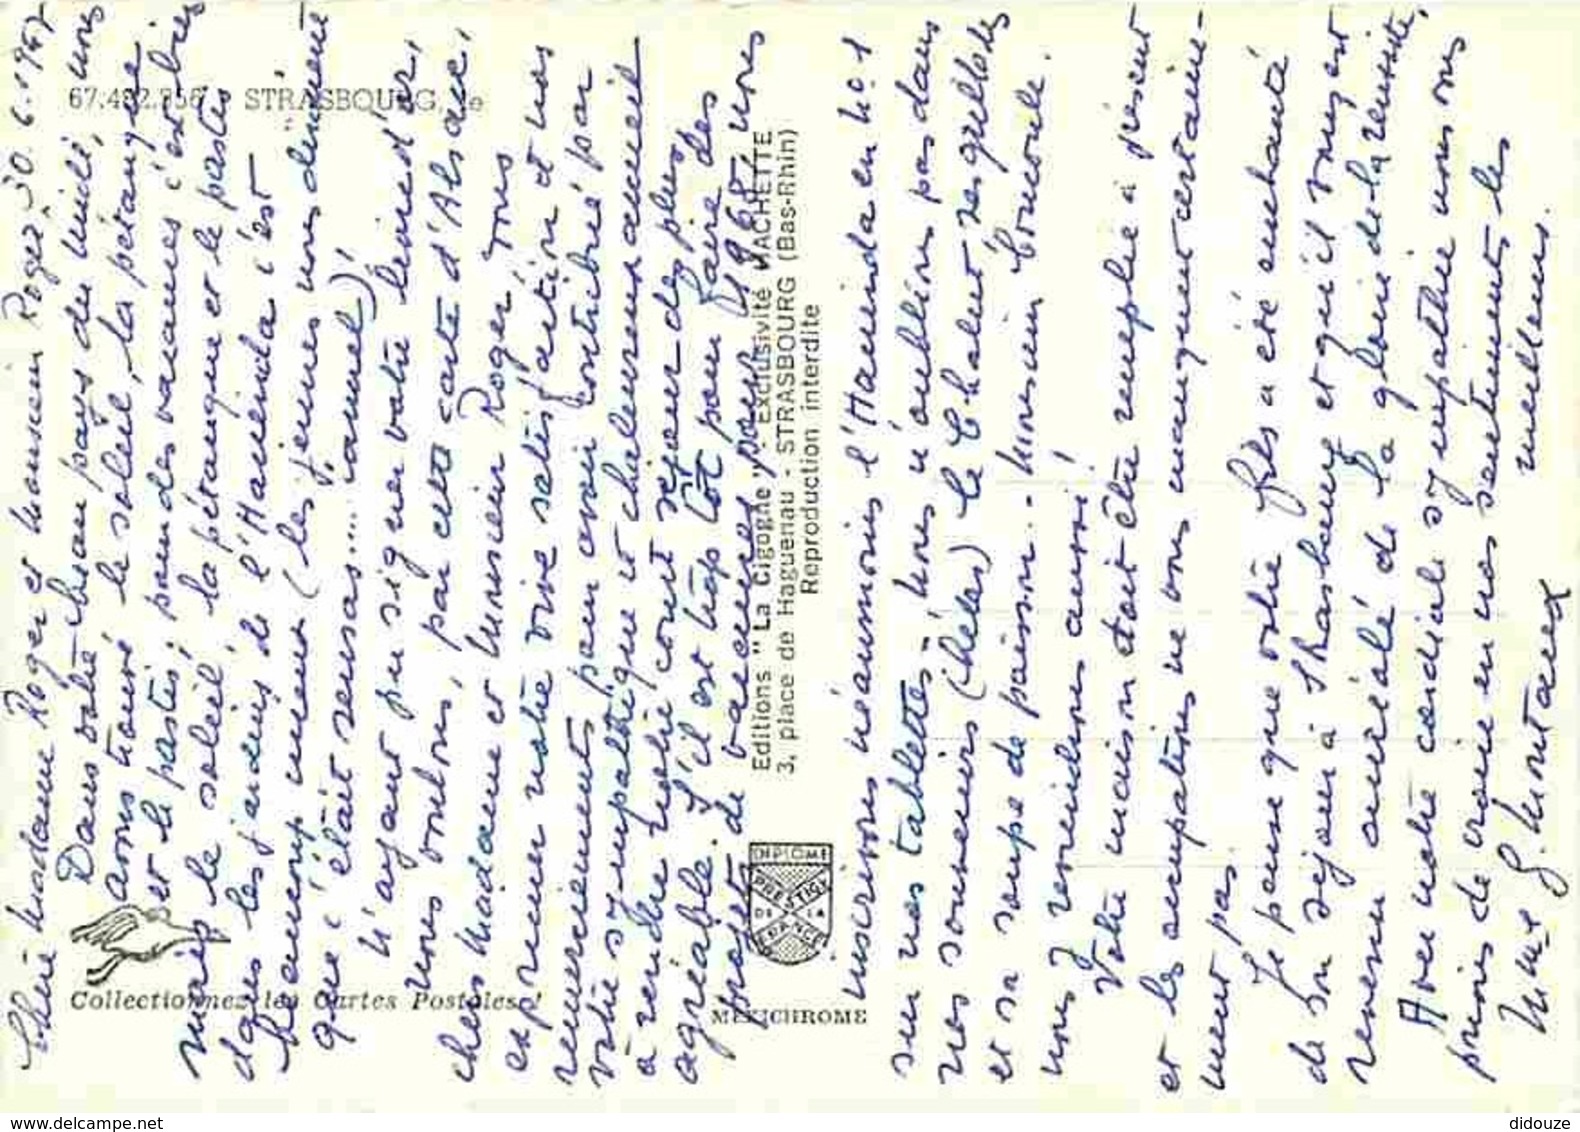 Chère Madame Roger et Monsieur Roger, 30.6.1967
Dans votre beau pays du midi, nous
avons trouvé le soleil, la pétanque
et le pastis; pour des vacances c'est bien
mais le soleil, la pétanque et le pastis
dans les jardins de l'Hacienda c'est
beaucoup mieux (les jeunes nous dirent
que c'était sensas.... ionnel)!
N'ayant pu signer votre livre d'or,
nous voulons, par cette carte d'Alsace,
chers Madame et Monsieur Roger, vous
exprimer notre vive satisfaction et nos
remerciements pour avoir contribué par
votre sympathique et chaleureux accueil
à rendre notre court séjour des plus
agréable. S'il est trop tôt pour faire des
projets de vacances pour 1968 nous
inscrivons néanmoins l'Hacienda en No 1
sur nos tablettes. Nous n'oublions pas dans
nos souvenirs (hélas) le Chalut ses grillades
et sa soupe de poisson.. Monsieur
nous y reviendrons aussi!
Votre maison doit être remplie à présent
et les occupations ne vous manquent certaine-
ment pas.
Je pense que votre fils a été enchanté
de son séjour à Strasbourg et qu'il vous est
revenu auréolé de la gloire de la réussite.
Avec notre cordiale sympathie nous vous
prions de croire en nos sentiments les
meilleurs.
Mme G. Montavon
67.482.356 - STRASBOURG
Collectionnez les Cartes Postales !
Editions "La Cigogne" - Exclusivité HACHETTE
3, place de Haguenau - STRASBOURG (Bas-Rhin)
Reproduction interdite
DIPLOME
PRESTIGE
DE LA
FRANCE
MEXICHROME
delcampe.net
didouze